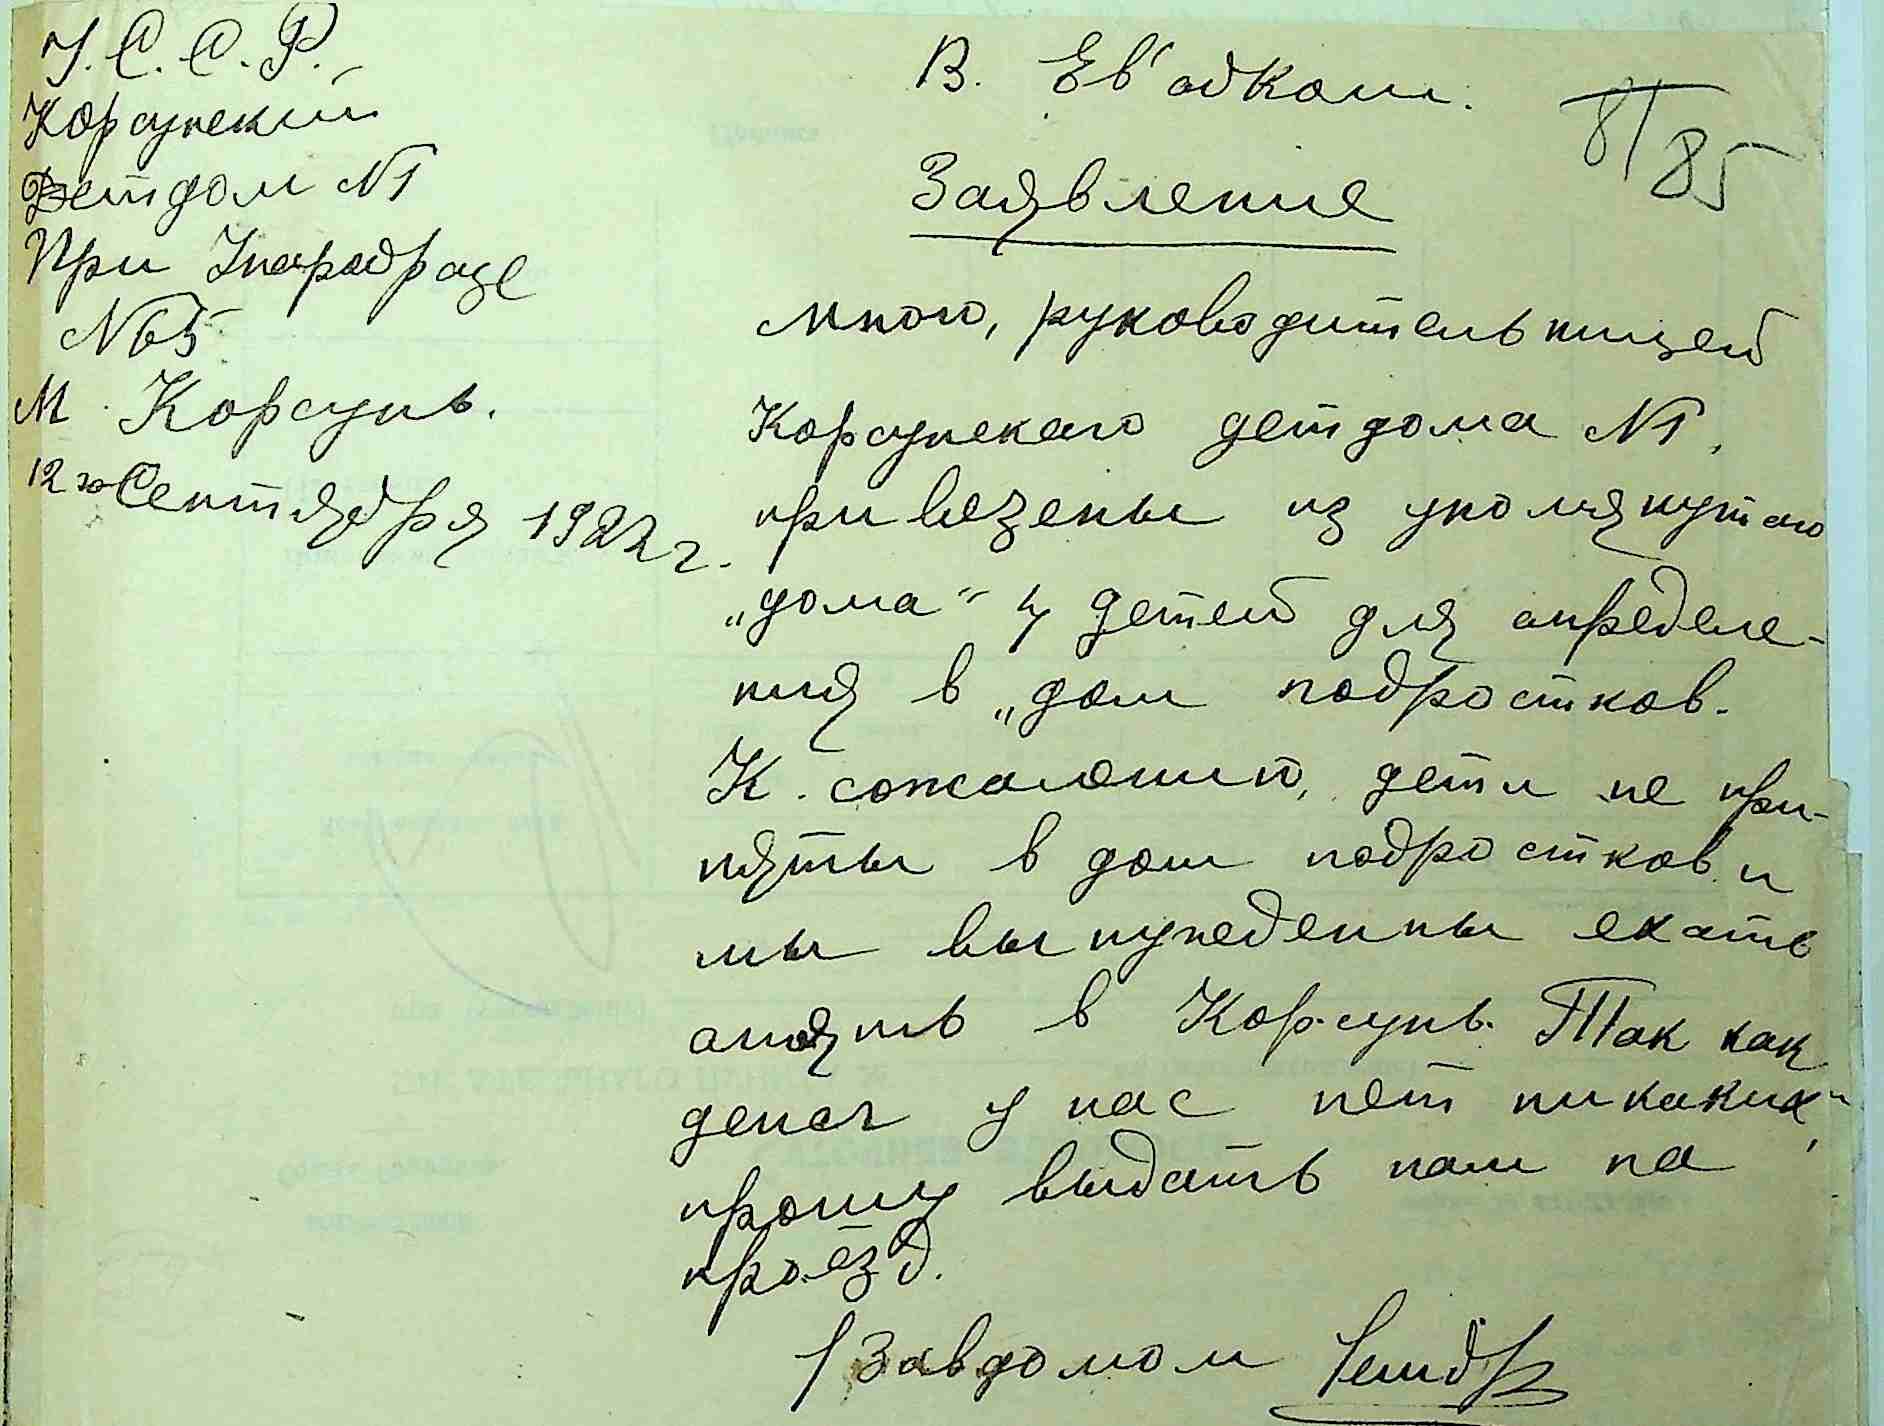 У.С.С.Р.
Корсунский
Детдом №1
При Унаробразе
№65
М. Корсунь.
12го Сентября 1922 г.
В. Ев'обком.
81
85
Заявление
Мною, руководительницей
Корсунскаго детдома №1,
привезены из упомянутаго
„дома" 4 детей для определе-
ния в „дом подростков.
К сожалению, дети не при-
няты в дом подростков и
мы вынужденны ехать
опять в Корсунь. Так как
денег у нас нет никаких,
прошу выдать нам на
проезд.
Завдомом